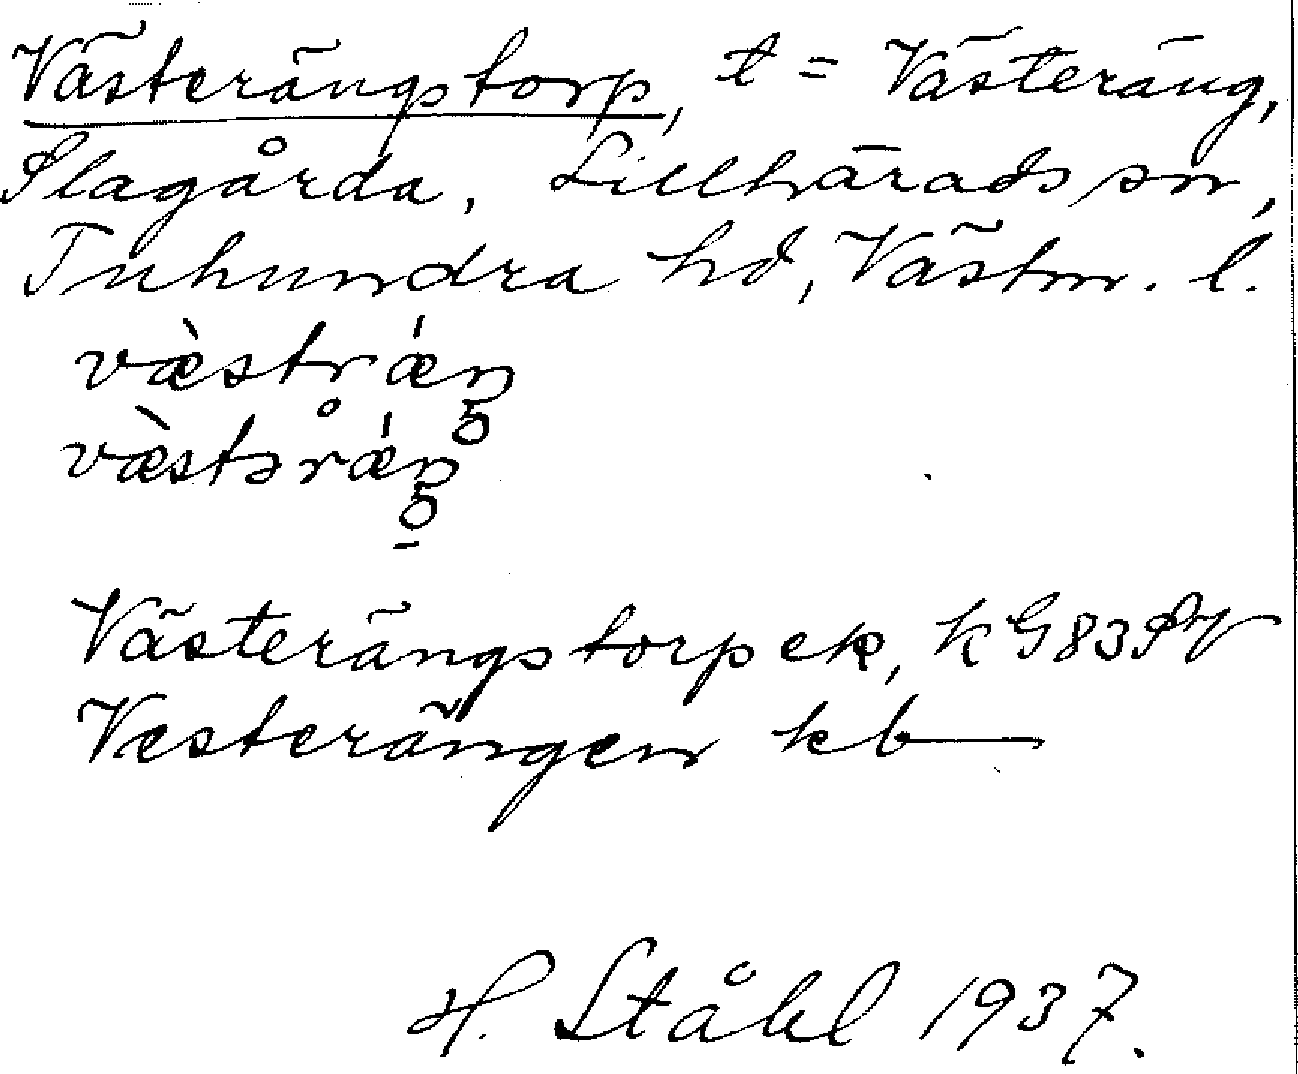 Västerängstorp, t = Västeräng,
Slagårda, Lillhärads sn,
Tuhundra hd, Västm. l.
væ̀strǽŋ
væ̀stərǽŋ
Västerängstorp ek,
Vesterängen kb
H. Ståhl 1937.